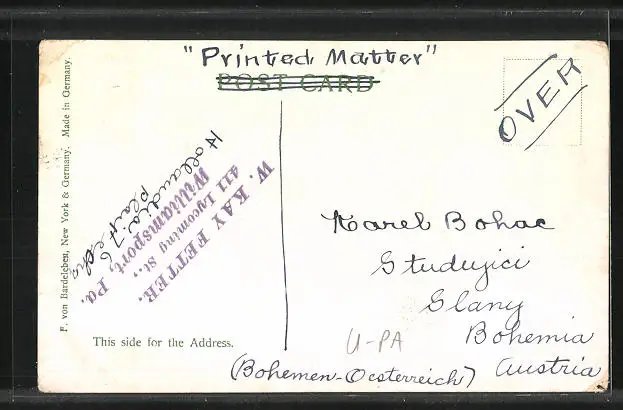 "Printed Matter"
POST CARD
OVER
F. von Bardeleben, New York & Germany. Made in Germany.
W. KAY FETTER.
411 Lycoming St.,
Williamsport, Pa.
Hollandia 76
Karel Bohac
Studujici
Slany
Bohemia
Austria
(Bohemen-Oesterreich)
U-PA
This side for the Address.